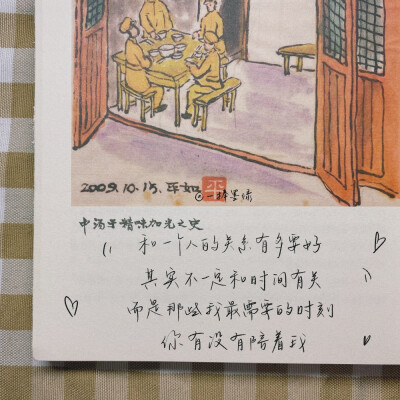 2009.10.15.平如
平
中汤于精味加光之史
和一个人的关系有多要好
其实不一定和时间有关
而是那些我最需要的时刻
你有没有陪着我